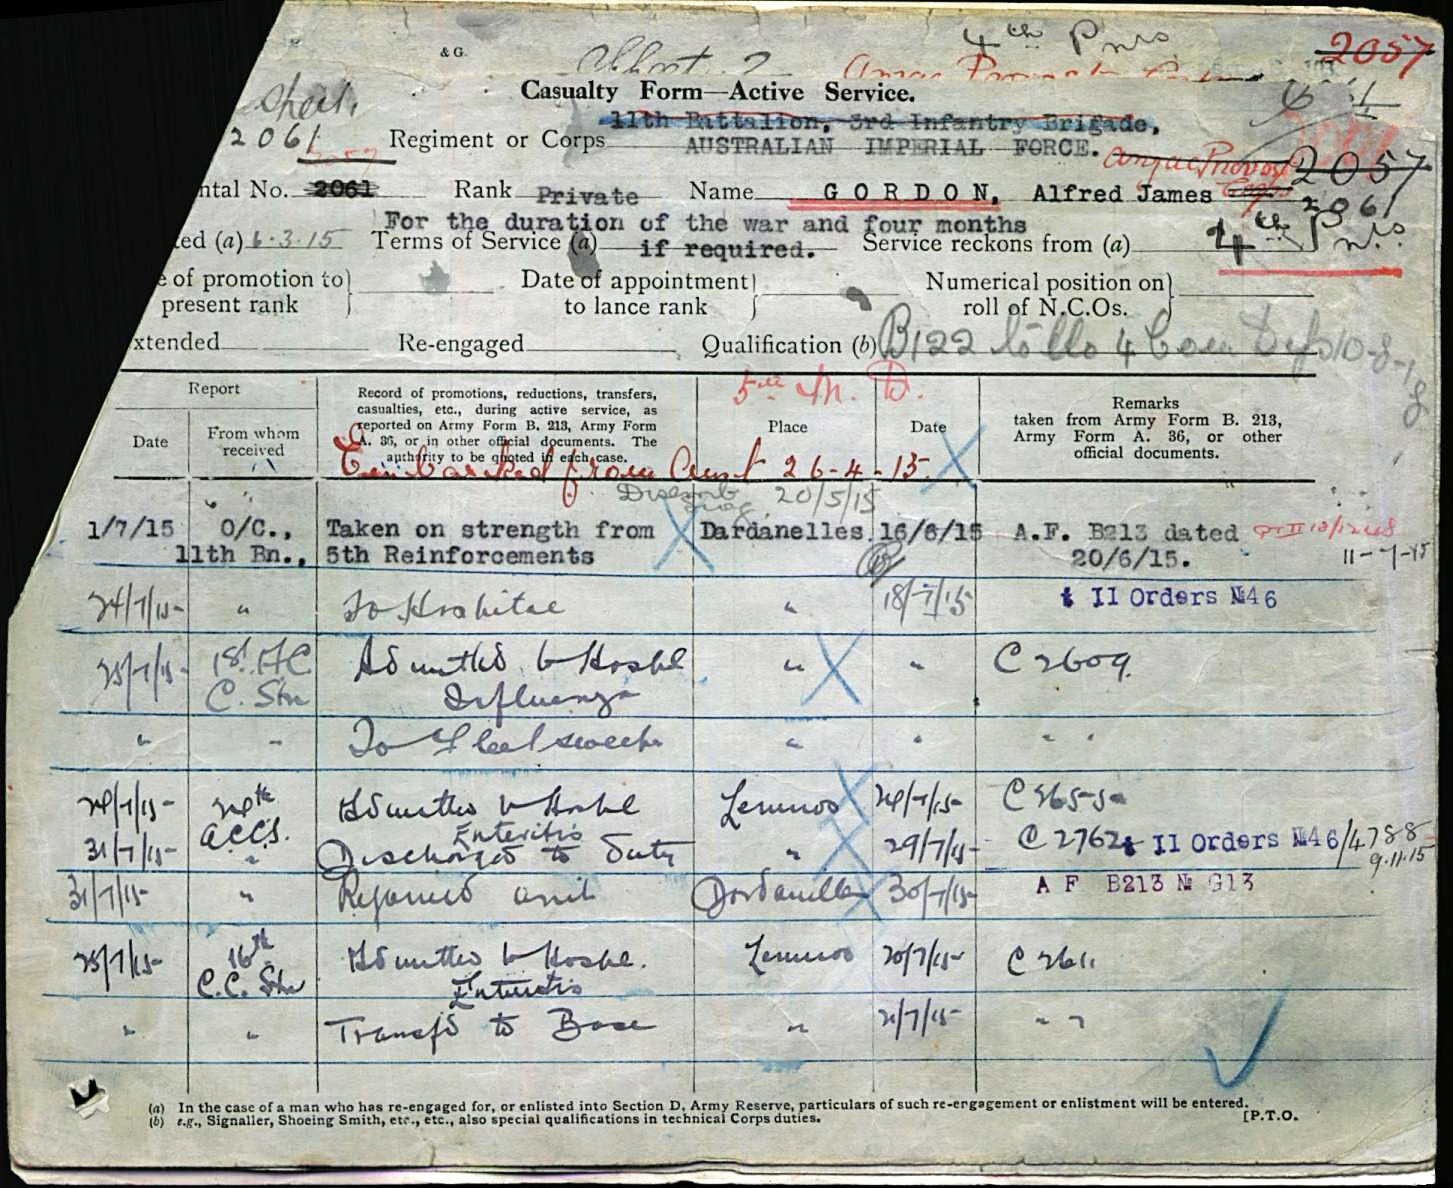 & G.
4th Pnrs
2057
Casualty Form—Active Service.
Sheet
11th Battalion, 3rd Infantry Brigade,
2061
Regiment or Corps AUSTRALIAN IMPERIAL FORCE.
Anzac Provost Corps
2057
ntal No. 2061 Rank Private Name GORDON, Alfred James
2061
For the duration of the war and four months
4th Pnrs.
ted (a) 6.3.15 Terms of Service (a) if required. Service reckons from (a)
e of promotion to present rank
Date of appointment to lance rank
Numerical position on roll of N.C.Os.
xtended Re-engaged Qualification (b)
B122 to
10-8-18
5th M. D.
Report
Date
From whom received
Record of promotions, reductions, transfers, casualties, etc., during active service, as reported on Army Form B. 213, Army Form A. 36, or in other official documents. The authority to be quoted in each case.
Place
Date
Remarks
taken from Army Form B. 213, Army Form A. 36, or other official documents.
Embarked from Aust 26-4-15.
Disemb 20/5/15
1/7/15 O/C., Taken on strength from Dardanelles 16/6/15 A.F. B213 dated
11th Bn., 5th Reinforcements 20/6/15.
11-7-15
24/7/15 " To Hospital " 18/7/15 II Orders №46
25/7/15 1st A C Admitted to Hospl " " C 2609
C. Stn Influenza
" " To Fleet sweeper " " " "
24th Admitted to Hospl Lemnos C 2655
A.C.C.S. Enteritis
31/7/15 " Discharged to Duty " 29/7/15 C 2762 II Orders №46/4788
9.11.15
31/7/15 " Rejoined unit Dardanelles 30/7/15 A F B213 № G13
25/7/15 16th Admitted to Hospl. Lemnos 20/7/15 C 2611
C.C. Stn Enteritis
" " Transfd to Base " 21/7/15 " "
(a) In the case of a man who has re-engaged for, or enlisted into Section D, Army Reserve, particulars of such re-engagement or enlistment will be entered.
(b) e.g., Signaller, Shoeing Smith, etc., etc., also special qualifications in technical Corps duties.
[P.T.O.